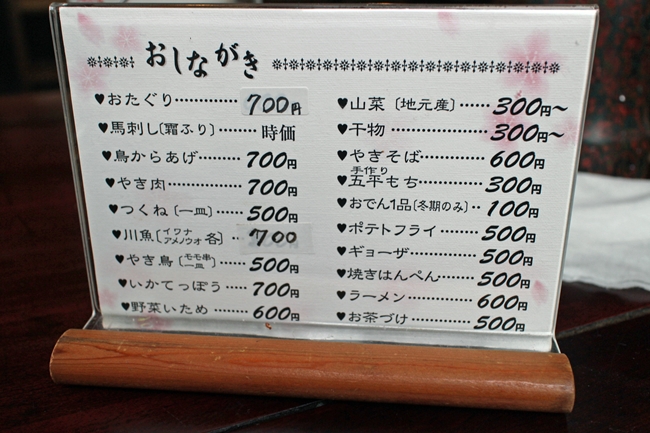 おしながき
♥おたぐり………… 700円
♥馬刺し〔霜ふり〕…… 時価
♥鳥からあげ……… 700円
♥やき肉………… 700円
♥つくね〔一皿〕…… 500円
♥川魚〔イワナ アメノウオ 各〕… 700
♥やき鳥〔モモ串 一皿〕…… 500円
♥いかてっぽう…… 700円
♥野菜いため…… 600円
♥山菜〔地元産〕…… 300円～
♥干物………… 300円～
♥やきそば……… 600円
♥手作り五平もち…… 300円
♥おでん1品〔冬期のみ〕… 100円
♥ポテトフライ…… 500円
♥ギョーザ……… 500円
♥焼きはんぺん…… 500円
♥ラーメン……… 600円
♥お茶づけ……… 500円